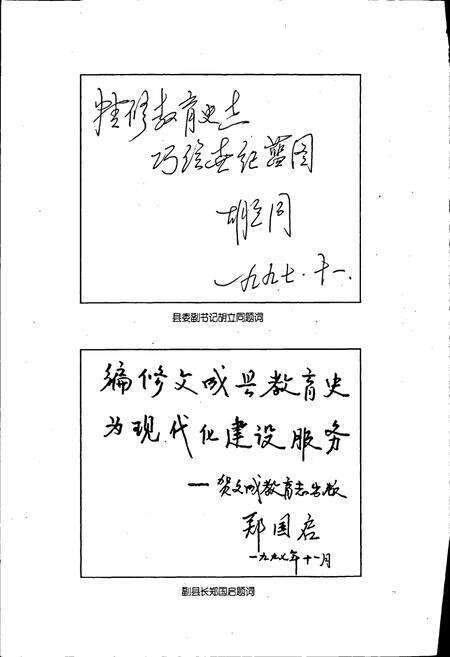 精修教育史志
巧绘世纪蓝图
胡立同
一九九七.十一.
县委副书记胡立同题词
编修文成县教育史
为现代化建设服务
——贺文成教育志出版
郑国启
一九九七年十一月
副县长郑国启题词